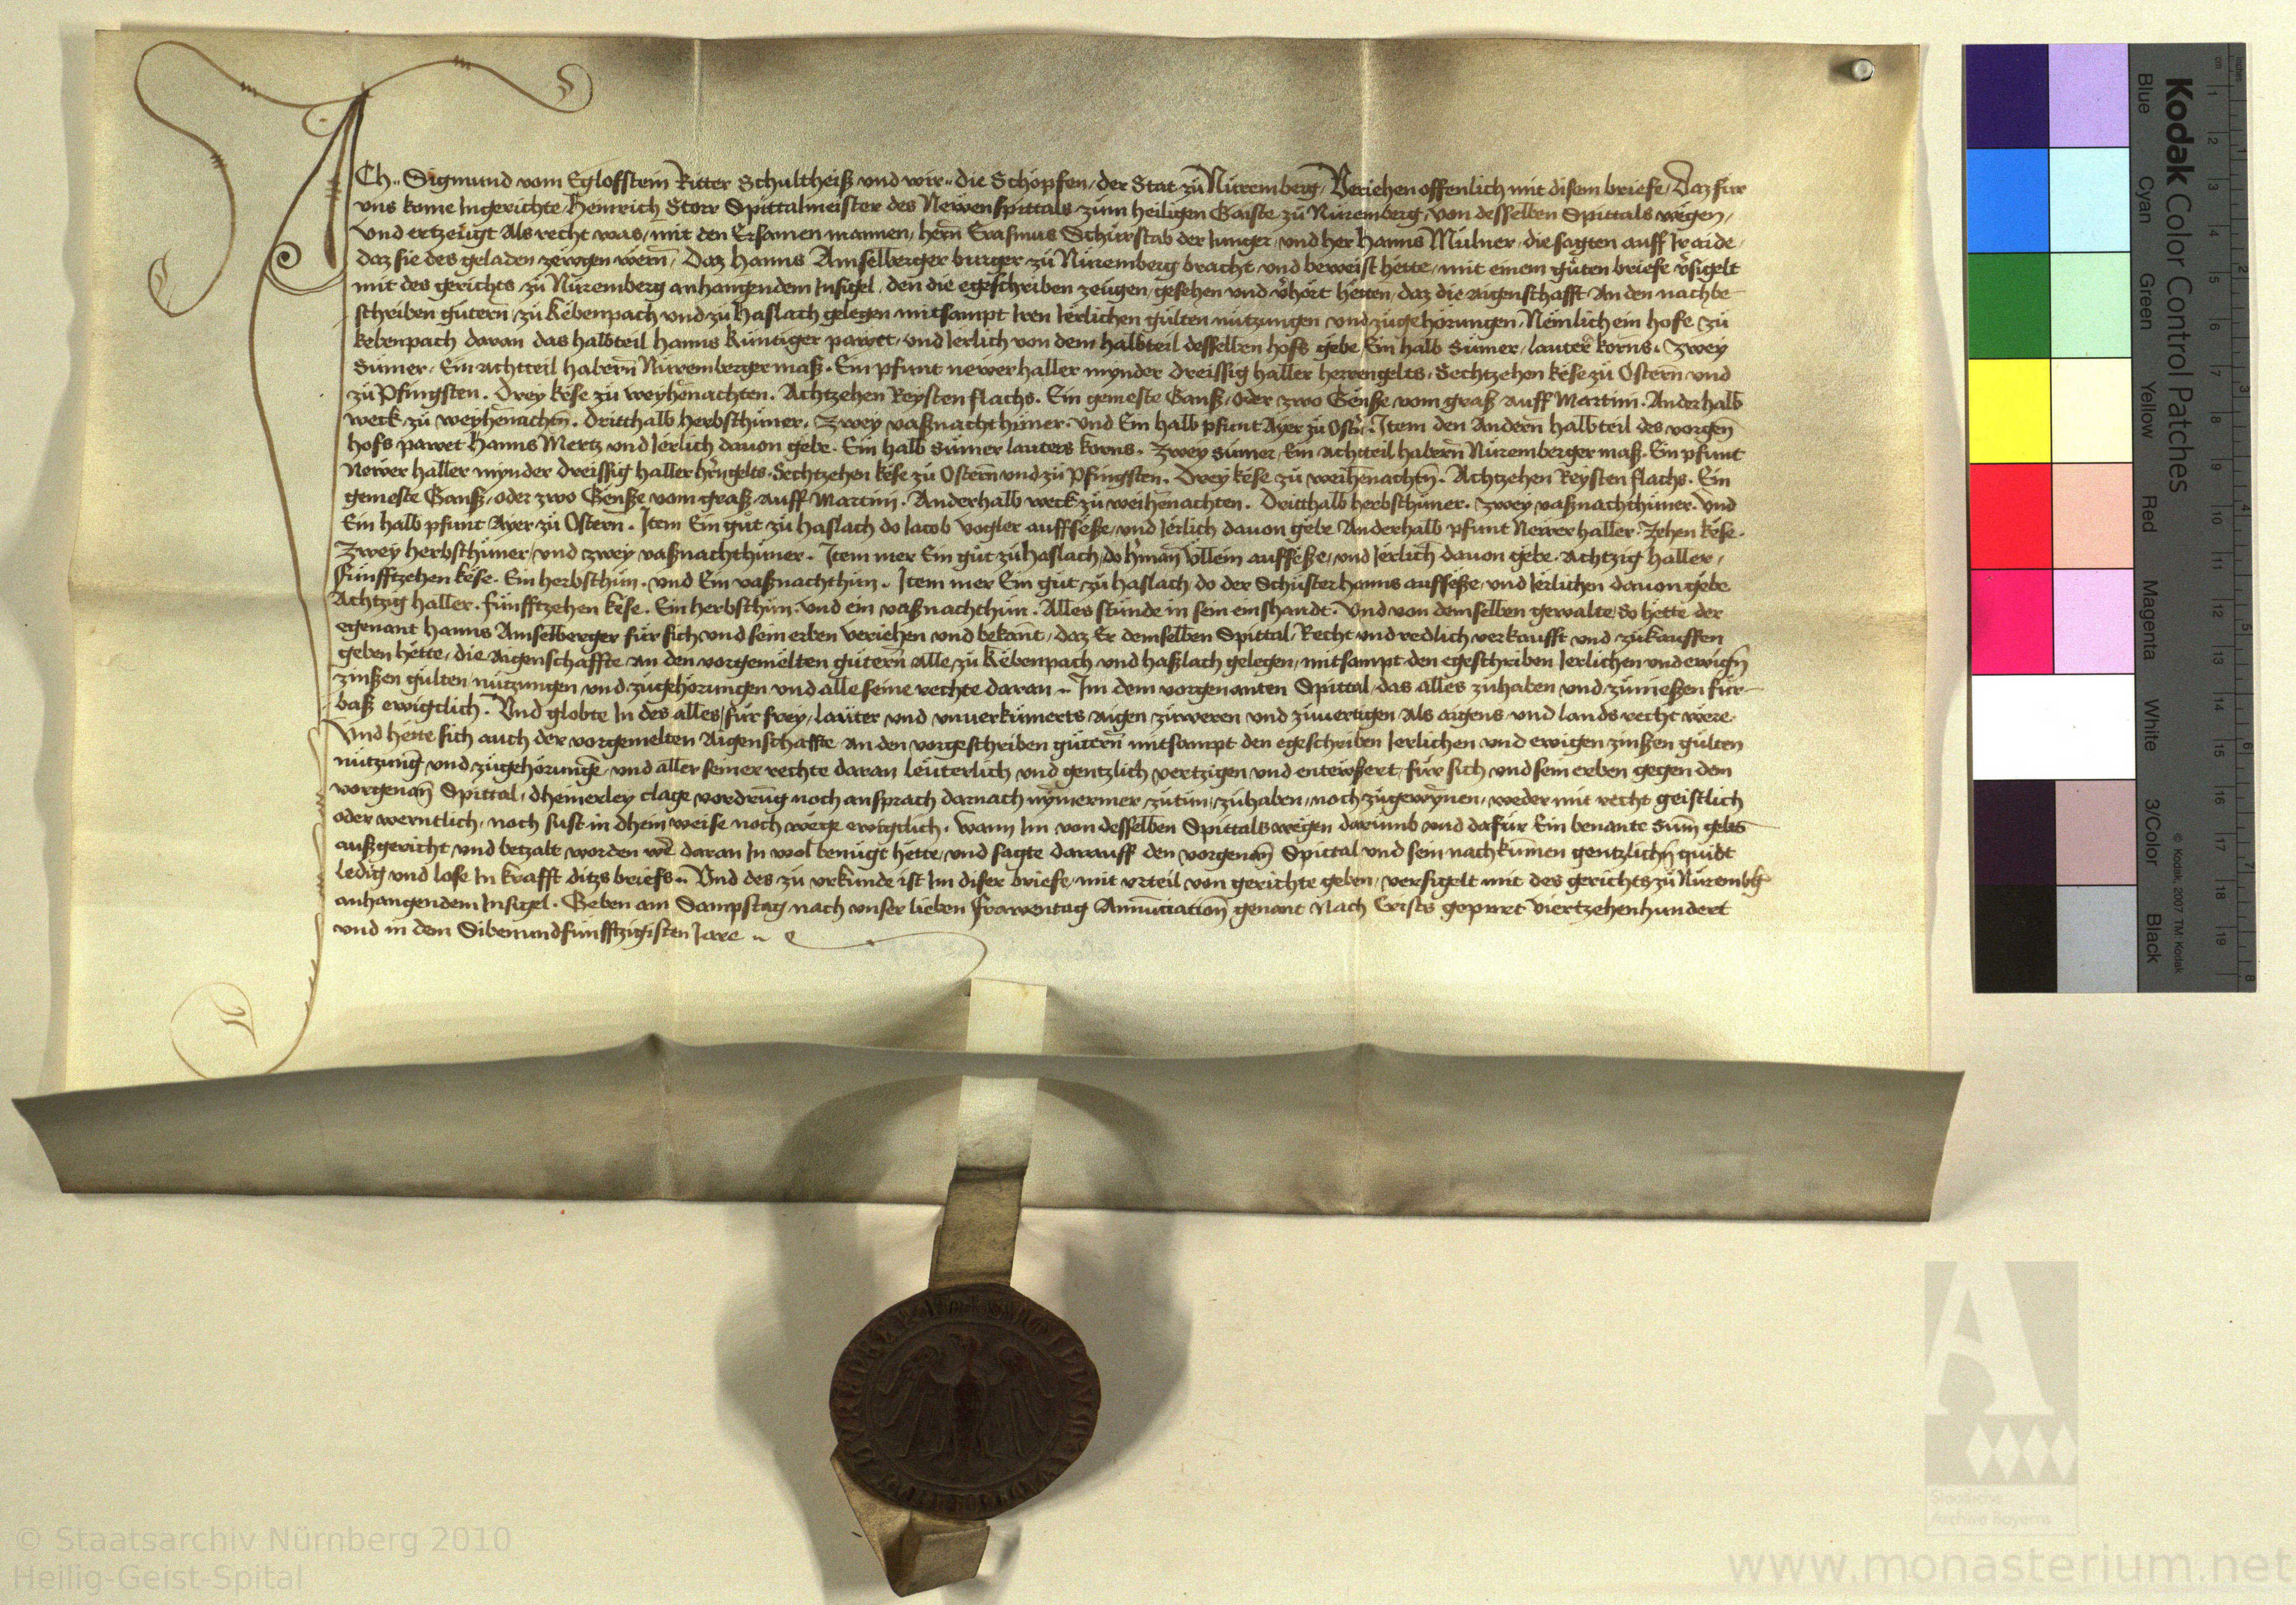 ICh Sigmund vom Egloffstein Ritter Schultheiß und wir die Schöpfen der Stat zů Nůremberg Veriehen offenlich mit disem briefe Daz für
vns kome Ingerichte Heinrich Storr Spittalmeister des Newenspittals zům heiligen Gaiste zů Nůremberg von desselben Spittals wegen
Vnd ertzeůgt Als recht was mit den Ersamen mannen hern̄ Erasmus Schůrstab der Iunger vnd her Hanns Můlner die sagten auff Ir aide
daz sie des geladen zewgen wern̄ Daz Hanns Amselberger burger zů Nůremberg bracht vnd beweist hette mit einem gůten briefe v̓sigelt
mit des gerichts zů Nůremberg anhangendem Insigel den die egeschriben zeůgen gesehen vnd v̓hört hetten daz die Aigenschafft An den nachbe
schriben gůtern̄ zů Kebenpach vnd zů Haslach gelegen mitsampt Iren Ierlichen gůlten nůtzungen vnd zůgehörungen Nemlich ein hofe zů
kebenpach daran das halbteil Hanns Kůntiger pawet vnd Ierlich von dem halbteil desselben hofs gebe Ein halb Sůmer lauters korns. Zwey
Sůmer Ein achtteil habern̄ Nůremberger maß. Ein pfunt newer haller mynder dreissig haller herrengelts. Sechtzehen kese zů Ostern̄ vnd
zů Pfingsten. Drey kese zů weyhenachten. Achtzehen Reysten flachs. Ein gemeste Ganß oder zwo Genße vom graß auff Martini. Anderhalb
weck zů weyhenachtn̄. Dritthalb herbsthůner. Zwey vaßnachthůner. Vnd Ein halb pfunt Ayer zů Ostn̄. Item den Andern̄ halbteil des vorgen̄
hofs pawet Hanns Mertz vnd Ierlich dauon gebe. Ein halb Sůmer lauters korns. Zwey Sůmer Ein Achtteil habern̄ Nůremberger maß. Ein pfunt
Newer haller mynder dreissig haller hr̄ngelts. Sechtzehen kese zů Ostern̄ vnd zů Pfingsten. Drey kese zů weihenachtn̄. Achtzehen Reysten flachs. Ein
gemeste Ganß oder zwo Genße vom graß auff Martini. Anderhalb weck zů weihenachten. Dritthalb herbsthůner. Zwey vaßnachthůner. Vnd
Ein halb pfunt Ayer zů Ostern̄. Item Ein gůt zů Haslach do Iacob Vogler auffseße vnd Ierlich dauon gebe Anderhalb pfunt Newer haller. Zehen kese.
Zwey herbsthůner vnd zwey vaßnachthůner. Item mer Ein gůt zů Haslach do h̓man̄ Vllein auffseße vnd Ierlich dauon gebe. Achtzig haller
Fůnfftzehen kese. Ein herbsthůn. vnd Ein vaßnachthůn. Item mer Ein gůt zů Haslach do der Schůster Hanns auffseße vnd Ierlichen dauon gebe
Achtzig haller. fůnfftzehen kese. Ein herbsthůn. vnd ein vaßnachthůn. Alles stůnde in sein einshandt. Vnd von demselben gewalte so hette der
egenant Hanns Amselberger für sich vnd sein erben veriehen vnd bekant̄ daz Er demselben Spittal Recht vnd redlich verkaufft vnd zůkauffen
geben hette die Aigenschaffte an den vorgemelten gůtern̄ alle zů Kebenpach vnd haßlach gelegen mitsampt den egeschriben Ierlichen vnd ewign̄
zinßen gůlten nůtzungen vnd zůgehörungen vnd alle seine rechte daran Im dem vorgenanten Spittal das alles zůhaben vnd zůnießen für
baß ewigclich. Vnd globte In des alles für frey lauter vnd vnuerkůmerts Aigen zůweren vnd zůuertigen Als aigens vnd lands recht were
Vnd hette sich auch der vorgemelten Aigenschaffte an den vorgeschriben gůtern̄ mitsampt den egeschriben Ierlichen vnd ewigen zinßen gůlten
nůtzunḡ vnd zůgehörunge vnd aller seiner rechte daran leůterlich vnd gentzlich vertzigen vnd entewßert für sich vnd sein erben gegen dem
vorgenan̄ Spittal dheinerley clage vordrūg noch ansprach darnach nymermer zůtůn zůhaben noch zůgewynnen weder mit recht geistlich
oder werntlich noch sust in dhein weise noch wege ewigclich. Wann Im von desselben Spittals wegen darůmb vnd dafür Ein benante Sum̄ gelts
außgericht vnd betzalt worden wer̄ daran In wol benůgt hette vnd sagte darauff den vorgenan̄ Spittal vnd sein nachkůmen gentzlichn̄ quidt
ledig vnd lose In krafft ditzs briefs Vnd des zů vrkůnde ist Im diser briefe mit vrteil von gerichte geben versigelt mit des gerichts zů Nůrembg̓
anhangendem Insigel. Geben am Sampstag nach vnser lieben Frawentag Annūciation̄ genant Nach Crists gepurt Viertzehenhundert
vnd in dem Sibenundfůnfftzigisten Iare
Kodak Color Control Patches
Blue Cyan Green Yellow Red Magenta White 3/Color Black
© Kodak, 2007 TM: Kodak
inches 1 2 3 4 5 6 7 8
cm 1 2 3 4 5 6 7 8 9 10 11 12 13 14 15 16 17 18 19
Staatliche
Archive Bayerns
© Staatsarchiv Nürnberg 2010
Heilig-Geist-Spital
www.monasterium.net